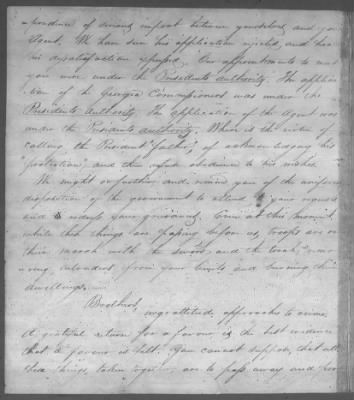 pondence of serious import between yourselves and your
Agent. We have seen his application rejected, and have
his dissatisfaction expressed. Our appointments to meet
you were under the Presidents Authority. The applica
tion of the Georgia Commissioners was under the
Presidents Authority. The application of the Agent was
under the Presidents authority. Where is the virtue of
calling the President "father", of acknowledging his
"protection", and then refuse obedience to his wishes.
We might go further, and remind you of the uniform
disposition of the government to attend to your requests
and to redress your grievances. Even at this moment,
while these things are passing before us, troops are on
their march with the sword, and the torch,
intruders, from your limits and burning their
dwellings.
Brothers, ingratitude, approaches to crime.
A grateful return for a favour is the best evidence
that a favour is felt. You cannot suppose, that all
these things, taken together, are to pass away and